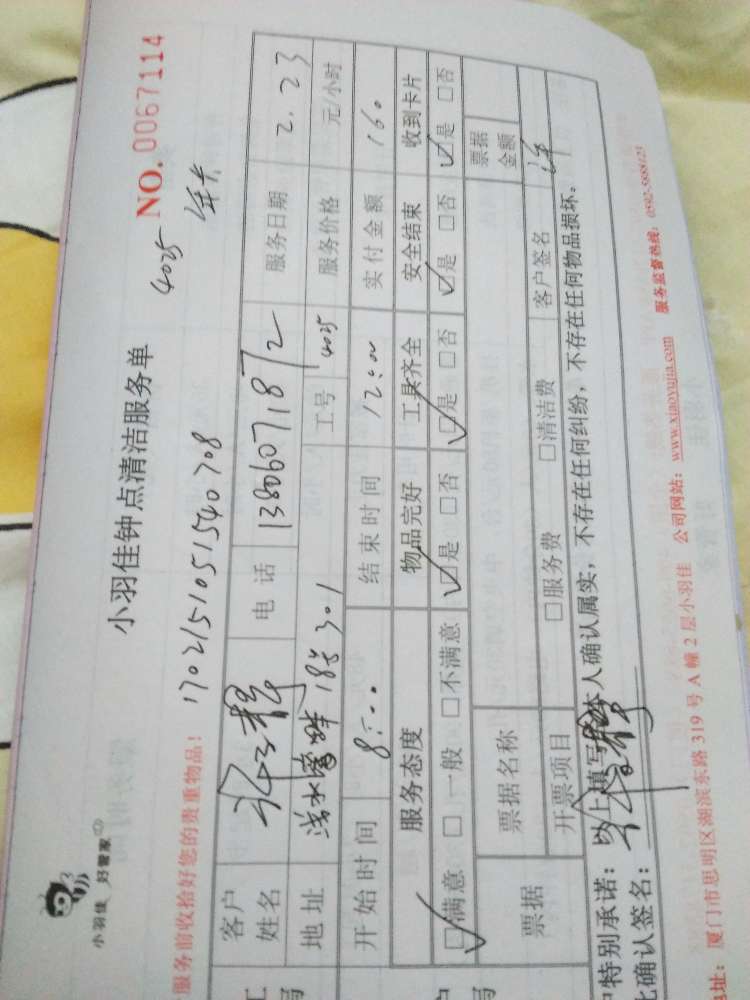 小羽佳 好管家
小羽佳钟点清洁服务单
NO. 0067114
4025 年卡
服务前收拾好您的贵重物品! 1702151051540708
客户姓名 电话 13806071872 服务日期 2.23
地址 浅水湾畔 18# 301 工号 4025 服务价格 元/小时
开始时间 8:00 结束时间 12:00 实付金额 160
服务态度 物品完好 工具齐全 安全结束 收到卡片
☑满意 □一般 □不满意 ☑是 □否 ☑是 □否 ☑是 □否 ☑是 □否
票据 票据名称 票据金额
开票项目 □服务费 □清洁费 客户签名
特别承诺: 以上填写本人确认属实,不存在任何纠纷,不存在任何物品损坏。
确认签名:
地址: 厦门市思明区湖滨东路 319 号 A 幢 2 层小羽佳 公司网站: www.xiaoyujia.com 服务监督热线: 0592-5888123